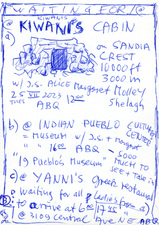 WAITING ECR/@
KIWANIS
a) KIWANI'S CABIN
@ SANDIA
CREST
10000 ft
3000 m
w/ J.S. Alice Margaret Molley
25 VII 2023 12°° Shelagh
TUES ABQ
b) @ INDIAN PUEBLO CULTURAL CENTER
= Museum w/ J.S. + Margaret
" " 16°° ABQ
"19 Pueblo's Museum"
MUCH TO
see + take in
c) @ YANNI'S Greek restaurant
waiting for all 4 ladies from a)
to arrive at 6 17 45
@ 3109 Central Avenue ABQ